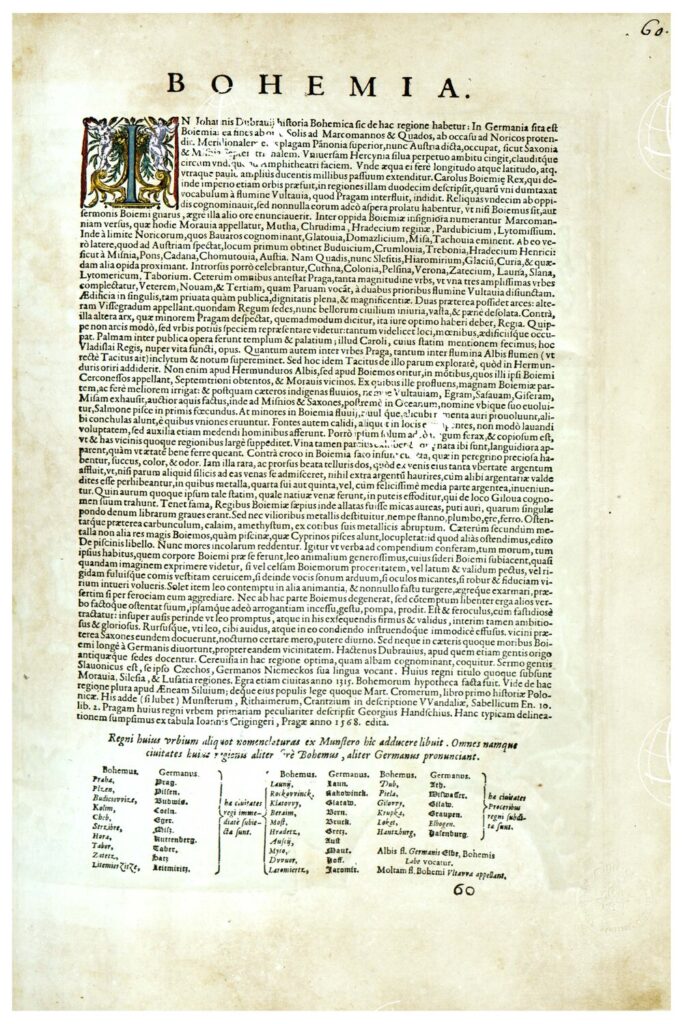 60.
BOHEMIA.
IN Johannis Dubrauij historia Bohemica sic de hac regione habetur: In Germania sita est
Boiemia: ea fines ab Solis ad Marcomannos & Quados, ab occasu ad Noricos proten-
dit. Meridionalem plagam Pãnonia superior, nunc Austria dicta, occupat, sicut Saxonia
& Vniuersam Hercynia silua perpetuo ambitu cingit, clauditque
circum vnd. Amphitheatri faciem. Vnde æqua ei ferè longitudo atque latitudo, atq.
vtraque paulo amplius ducentis millibus passuum extenditur. Carolus Boiemię Rex, qui de-
inde imperio etiam orbis præfuit, in regiones illam duodecim descripsit, quarũ vni dumtaxat
vocabulum à flumine Vultauia, quod Pragam interfluit, indidit. Reliquas vndecim ab oppi-
dis cognominauit, sed nonnulla eorum adeò aspera prolatu habentur, vt nisi Boiemus sit, aut
sermonis Boiemi gnarus, ægrè illa alio ore enunciauerit. Inter oppida Boiemiæ insigniora numerantur Marcoman-
niam versus, quæ hodie Morauia appellatur, Mutha, Chrudima, Hradecium reginæ, Pardubicium, Lytomissium.
Inde à limite Noricorum, quos Bauaros cognominant, Glatouia, Domazlicium, Misa, Tachouia eminent. Ab eo ve-
rò latere, quod ad Austriam spectat, locum primum obtinet Buduicium, Crumlouia, Trebonia, Hradecium Henrici:
sicut à Misnia, Pons, Cadana, Chomutouia, Austia. Nam Quadis, nunc Slesitis, Hiaromirium, Glaciũ, Curia, & quæ-
dam alia opida proximant. Introrsus porrò celebrantur, Cuthna, Colonia, Pelsina, Verona, Zatecium, Launa, Slana,
Lytomericum, Taborium. Ceterùm omnibus antestat Praga, tanta magnitudine vrbs, vt vna tres amplissimas vrbes
complectatur, Veterem, Nouam, & Tertiam, quam Paruam vocãt, à duabus prioribus flumine Vultauia disiunctam.
Ædificia in singulis, tam priuata quàm publica, dignitatis plena, & magnificentiæ. Duas præterea possidet arces: alte-
ram Vissegradum appellant. quondam Regum sedes, nunc bellorum ciuilium iniuria, vasta, & pæne desolata. Contrà,
illa altera arx, quæ minorem Pragam despectat, quemadmodum dicitur, ita iure optimo haberi debet, Regia. Quip-
pe non arcis modò, sed vrbis potius speciem repræsentare videtur: tantum videlicet loci, mœnibus, ædificiisque occu-
pat. Palmam inter publica opera ferunt templum & palatium; illud Caroli, cuius statim mentionem fecimus; hoc
Vladislai Regis, nuper vita functi, opus. Quantum autem inter vrbes Praga, tantum inter flumina Albis flumen (vt
rectè Tacitus ait) inclytum & notum supereminet. Sed hoc idem Tacitus de illo parum exploratè, quòd in Hermun-
duris oriri addiderit. Non enim apud Hermunduros Albis, sed apud Boiemos oritur, in mõtibus, quos illi ipsi Boiemi
Cerconessos appellant, Septemtrioni obtentos, & Morauis vicinos. Ex quibus ille profluens, magnam Boiemiæ par-
tem, ac ferè meliorem irrigat: & postquam cæteros indigenas fluuios, nempe Vultauiam, Egram, Safauam, Giseram,
Misam exhausit, auctior aquis factus, inde ad Misnios & Saxones, postremò in Oceanum, nomine vbique suo euolui-
tur, Salmone pisce in primis fœcundus. At minores in Boemia fluuij, menta auri prouoluunt, ali-
bi conchulas alunt, è quibus vniones eruuntur. Fontes autem calidi, aliquot in locis tes, non modò lauandi
voluptatem, sed auxilia etiam medendi hominibus afferunt. Porrò ipsum solum ad gum ferax, & copiosum est,
vt & has vicinis quoque regionibus largè suppeditet. Vina tamen nata ibi sunt, languidiora ap-
parent, quàm vt ætatè bene ferre queant. Contrà croco in Boemia quæ in peregrino preciosa ha-
bentur, succus, color, & odor. Iam illa rara, ac prorsus beata telluris dos, quòd ex venis eius tanta vbertate argentum
affluit, vt, nisi parum aliquid silicis ad eas venas se admisceret, nihil extra argentũ haurires, cùm alibi argentariæ valde
dites esse perhibeantur, in quibus metalla, quarta sui aut quinta, vel, cum felicissimè media parte argentea, inueniun-
tur. Quin aurum quoque ipsum tale statim, quale natiuæ venæ ferunt, in puteis effoditur, qui de loco Giloua cogno-
men suum trahunt. Tenet fama, Regibus Boiemiæ sæpius inde allatas fuisse micas aureas, puti auri, quarum singulæ
pondo denum librarum graues erant. Sed nec vilioribus metallis destituitur, nempe stanno, plumbo, ęre, ferro. Osten-
tarque præterea carbunculum, calaim, amethystum, ex cotibus suis metallicis abruptum. Cæterùm secundum me-
talla non alia res magis Boiemos, quàm piscinæ, quæ Cyprinos pisces alunt, locupletat: id quod aliàs ostendimus, edito
De piscinis libello. Nunc mores incolarum reddentur. Igitur vt verba ad compendium conferam, tum morum, tum
ipsius habitus, quem corpore Boiemi præ se ferunt, leo animal generosissimus, cuius sideri Boiemi subiacent, quasi
quandam imaginem exprimere videtur, si vel celsam Boiemorum proceritatem, vel latum & validum pectus, vel ri-
gidam fuluisque comis vestitam ceruicem, si deinde vocis sonum arduum, si oculos micantes, si robur & fiduciam vi-
rium intueri volueris. Solet item leo contemtu in alia animantia, & nonnullo fastu turgere, ægreque exarmari, præ-
sertim si per ferociam eum aggrediare. Nec ab hac parte Boiemus degenerat, sed cõtemptum libenter erga alios ver-
bo factoque ostentat suum, ipsamque adeò arrogantiam incessu, gestu, pompa, prodit. Est & feroculus, cùm fastidiosè
tractatur: insuper ausis perinde vt leo promptus, atque in his exsequendis firmus & validus, interim tamen ambitio-
sus & gloriosus. Rursusque, vti leo, cibi auidus, atque in eo condiendo instruendoque immodicè effusus. vicini præ-
terea Saxones eundem docuerunt, nocturno certare mero, putere diurno. Sed neque in cæteris quoque moribus Boi-
emi longè à Germanis diuortunt, propter eandem vicinitatem. Hactenus Dubrauius, apud quem etiam gentis origo
antiquæque sedes docentur. Cereuisia in hac regione optima, quam albam cognominant, coquitur. Sermo gentis
Slauonicus est, se ipso Czechos, Germanos Niemeckos sua lingua vocant. Huius regni titulo quoque subsunt
Morauia, Silesia, & Lusatia regiones. Egra etiam ciuitas anno 1315. Bohemorum hypotheca facta fuit. Vide de hac
regione plura apud Æneam Siluium; deque eius populis lege quoque Mart. Cromerum, libro primo historiæ Polo-
nicæ. His adde (si lubet) Munsterum, Rithaimerum, Crantzium in descriptione VVandaliæ, Sabellicum En. 10.
lib. 2. Pragam huius regni vrbem primariam peculiariter descripsit Georgius Handschius. Hanc typicam delinea-
tionem sumpsimus ex tabula Ioannis Crigingeri, Pragæ anno 1568. edita.
Regni huius vrbium aliquot nomenclaturas ex Munstero hic adducere libuit. Omnes namque
ciuitates huius regionis aliter ferè Bohemus, aliter Germanus pronunciant.
Bohemus. Germanus. Bohemus. Germanus. Bohemus. Germanus.
Praha, Prag. Launij, Laun. Dub, Ach.
Plzen, Pilsen. Rockovvinck, Rakowinck. Piela, Wiswasser.
Budieiovvize, Budwis. Klatovy, Glataw. Gilovvy, Gilaw.
Kolim, Coeln. Beraun, Bern. Krupka, Graupen.
Cheb, Eger. Most, Bruck. Loket, Elbogen.
Strzibro, Miß. Hradetz, Gretz. Hantzburg, Hasenburg.
Hora, Kuttenberg. Austij, Aust
Tabor, Taber. Myto, Maut.
Zatetz, Satz Dvvuer, Hoff.
Litomierziʒe, Leitmeritz. Laromiertz, Jaromir.
ha ciuitates
regi imme-
diatè subie-
cta sunt.
ha ciuitates
Proceribus
regni subie-
cta sunt.
Albis fl. Germanis Elbe, Bohemis
Labe vocatur.
Moltam fl. Bohemi Vltawa appellant.
60